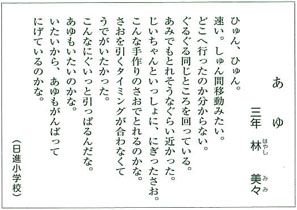 あゆ
三年 林 美々
はやし みみ
ひゅん、ひゅん。
速い。しゅん間移動みたい。
どこへ行ったのか分からない。
ぐるぐる同じところを回っている。
あみでもとれそうなぐらい近かった。
じいちゃんといっしょに、にぎったさお。
こんな手作りのさおでとれるのかな。
さおを引くタイミングが合わなくて
うでがいたかった。
こんなにぐいっと引っぱるんだな。
あゆもいたいのかな。
いたいから、あゆもがんばって
にげているのかな。
（日進小学校）